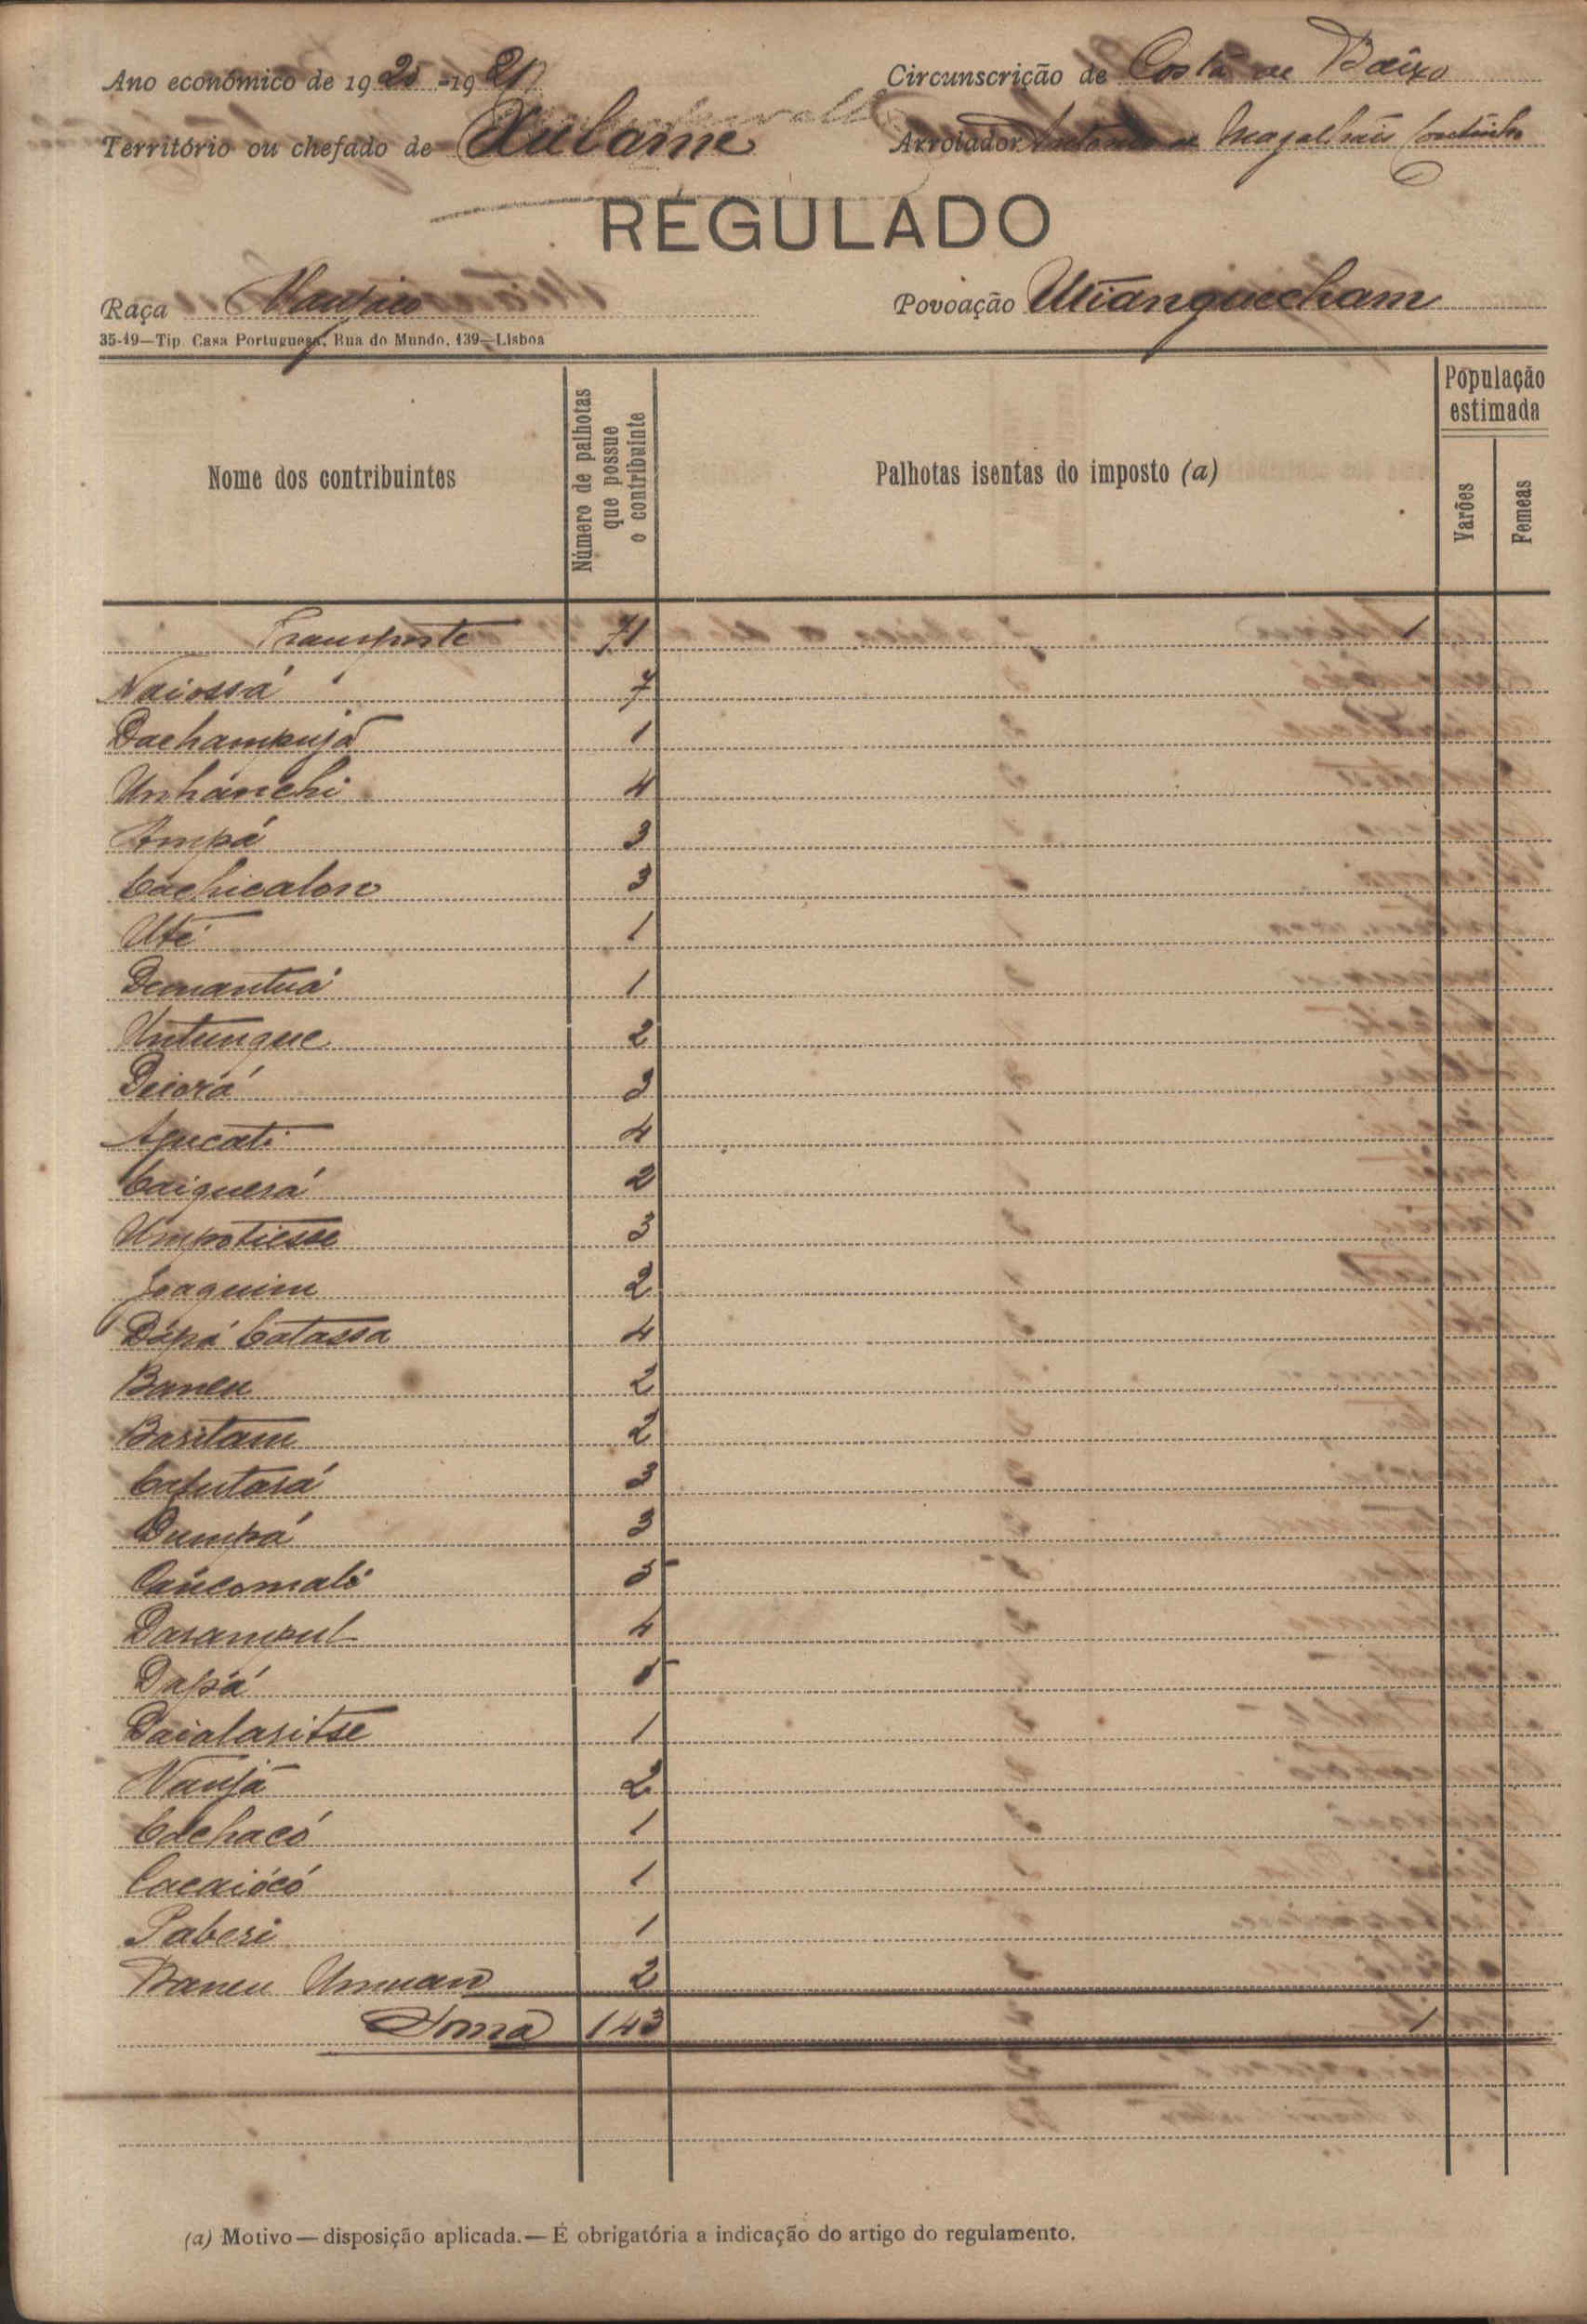 Ano económico de 1920-1921
Circunscrição de Costa de Baixo
Território ou chefado de Xulame
Arrolador Antonio de Magalhães Coutinho
REGULADO
Raça Manjaco
Povoação Utianquecham
35-19—Tip. Casa Portuguesa, Rua do Mundo, 139—Lisboa
Nome dos contribuintes
Número de palhotas que possue o contribuinte
Palhotas isentas do imposto (a)
População estimada
Varões
Femeas
Transporte 71 1
Naiossá 7
Dachampujá 1
Unhánchi 4
Ampá 3
Cachicalon 3
Uté 1
Demantuá 1
Untungue 2
Deiorá 3
Apucati 4
Caiguerá 2
Umpotiesse 3
Joaquim 2
Dápá Catassa 4
Baneu 2
Basitam 2
Cafutasá 3
Dumpá 3
Caiécomalé 5
Dasampul 4
Dapá 5
Daialasitse 1
Naujá 2
Cachacó 1
Cacaiócó 1
Paberi 1
Baneu Umuan 2
Soma 143 1
(a) Motivo — disposição aplicada. — É obrigatória a indicação do artigo do regulamento.